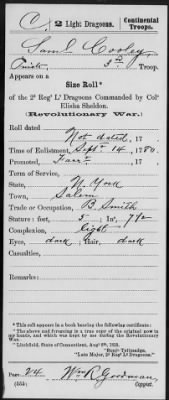 C. 2 Light Dragoons. Continental Troops.
Saml Cooley
Private, 3d Troop.
Appears on a
Size Roll*
of the 2d Reg't Lt Dragoons Commanded by Colo
Elisha Sheldon.
(Revolutionary War.)
Roll dated
Not dated, 17
Time of Enlistment, Sept 14, 1780.
Promoted, , 17
Term of Service,
State, N. York
Town, Salem
Trade or Occupation, B. Smith
Stature: feet, 5; in., 7 1/2
Complexion, light
Eyes, dark; hair, dark
Casualties,
Remarks:
*This roll appears in a book bearing the following certificate:
"The above and foregoing is a true copy of the original now in
my hands, and which was kept by me during the Revolutionary
War.
"Litchfield, State of Connecticut, Augt 8th, 1833.
"Benjn Tallmadge,
"Late Major, 2d Regt Lt. Dragoons."
Page 24 Wm R Goodman,
(555) Copyist.